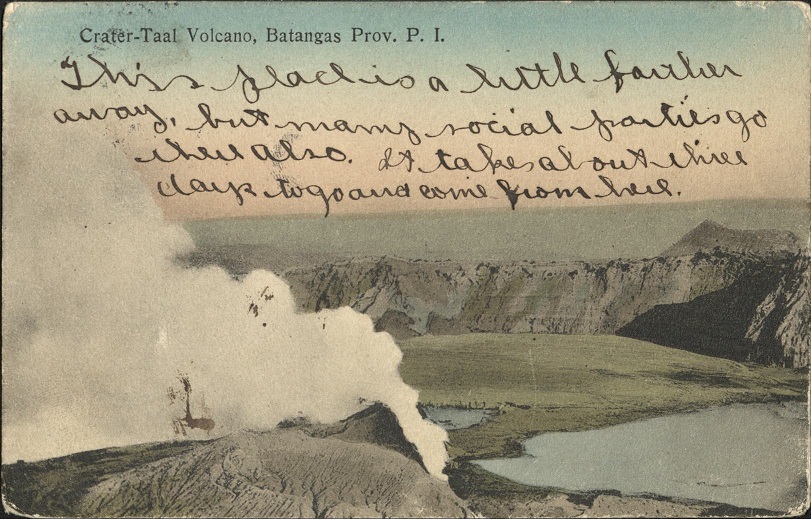 Crater-Taal Volcano, Batangas Prov. P. I.
This place is a little farther
away, but many social parties go
there also. It takes about three
days to go and come from here.